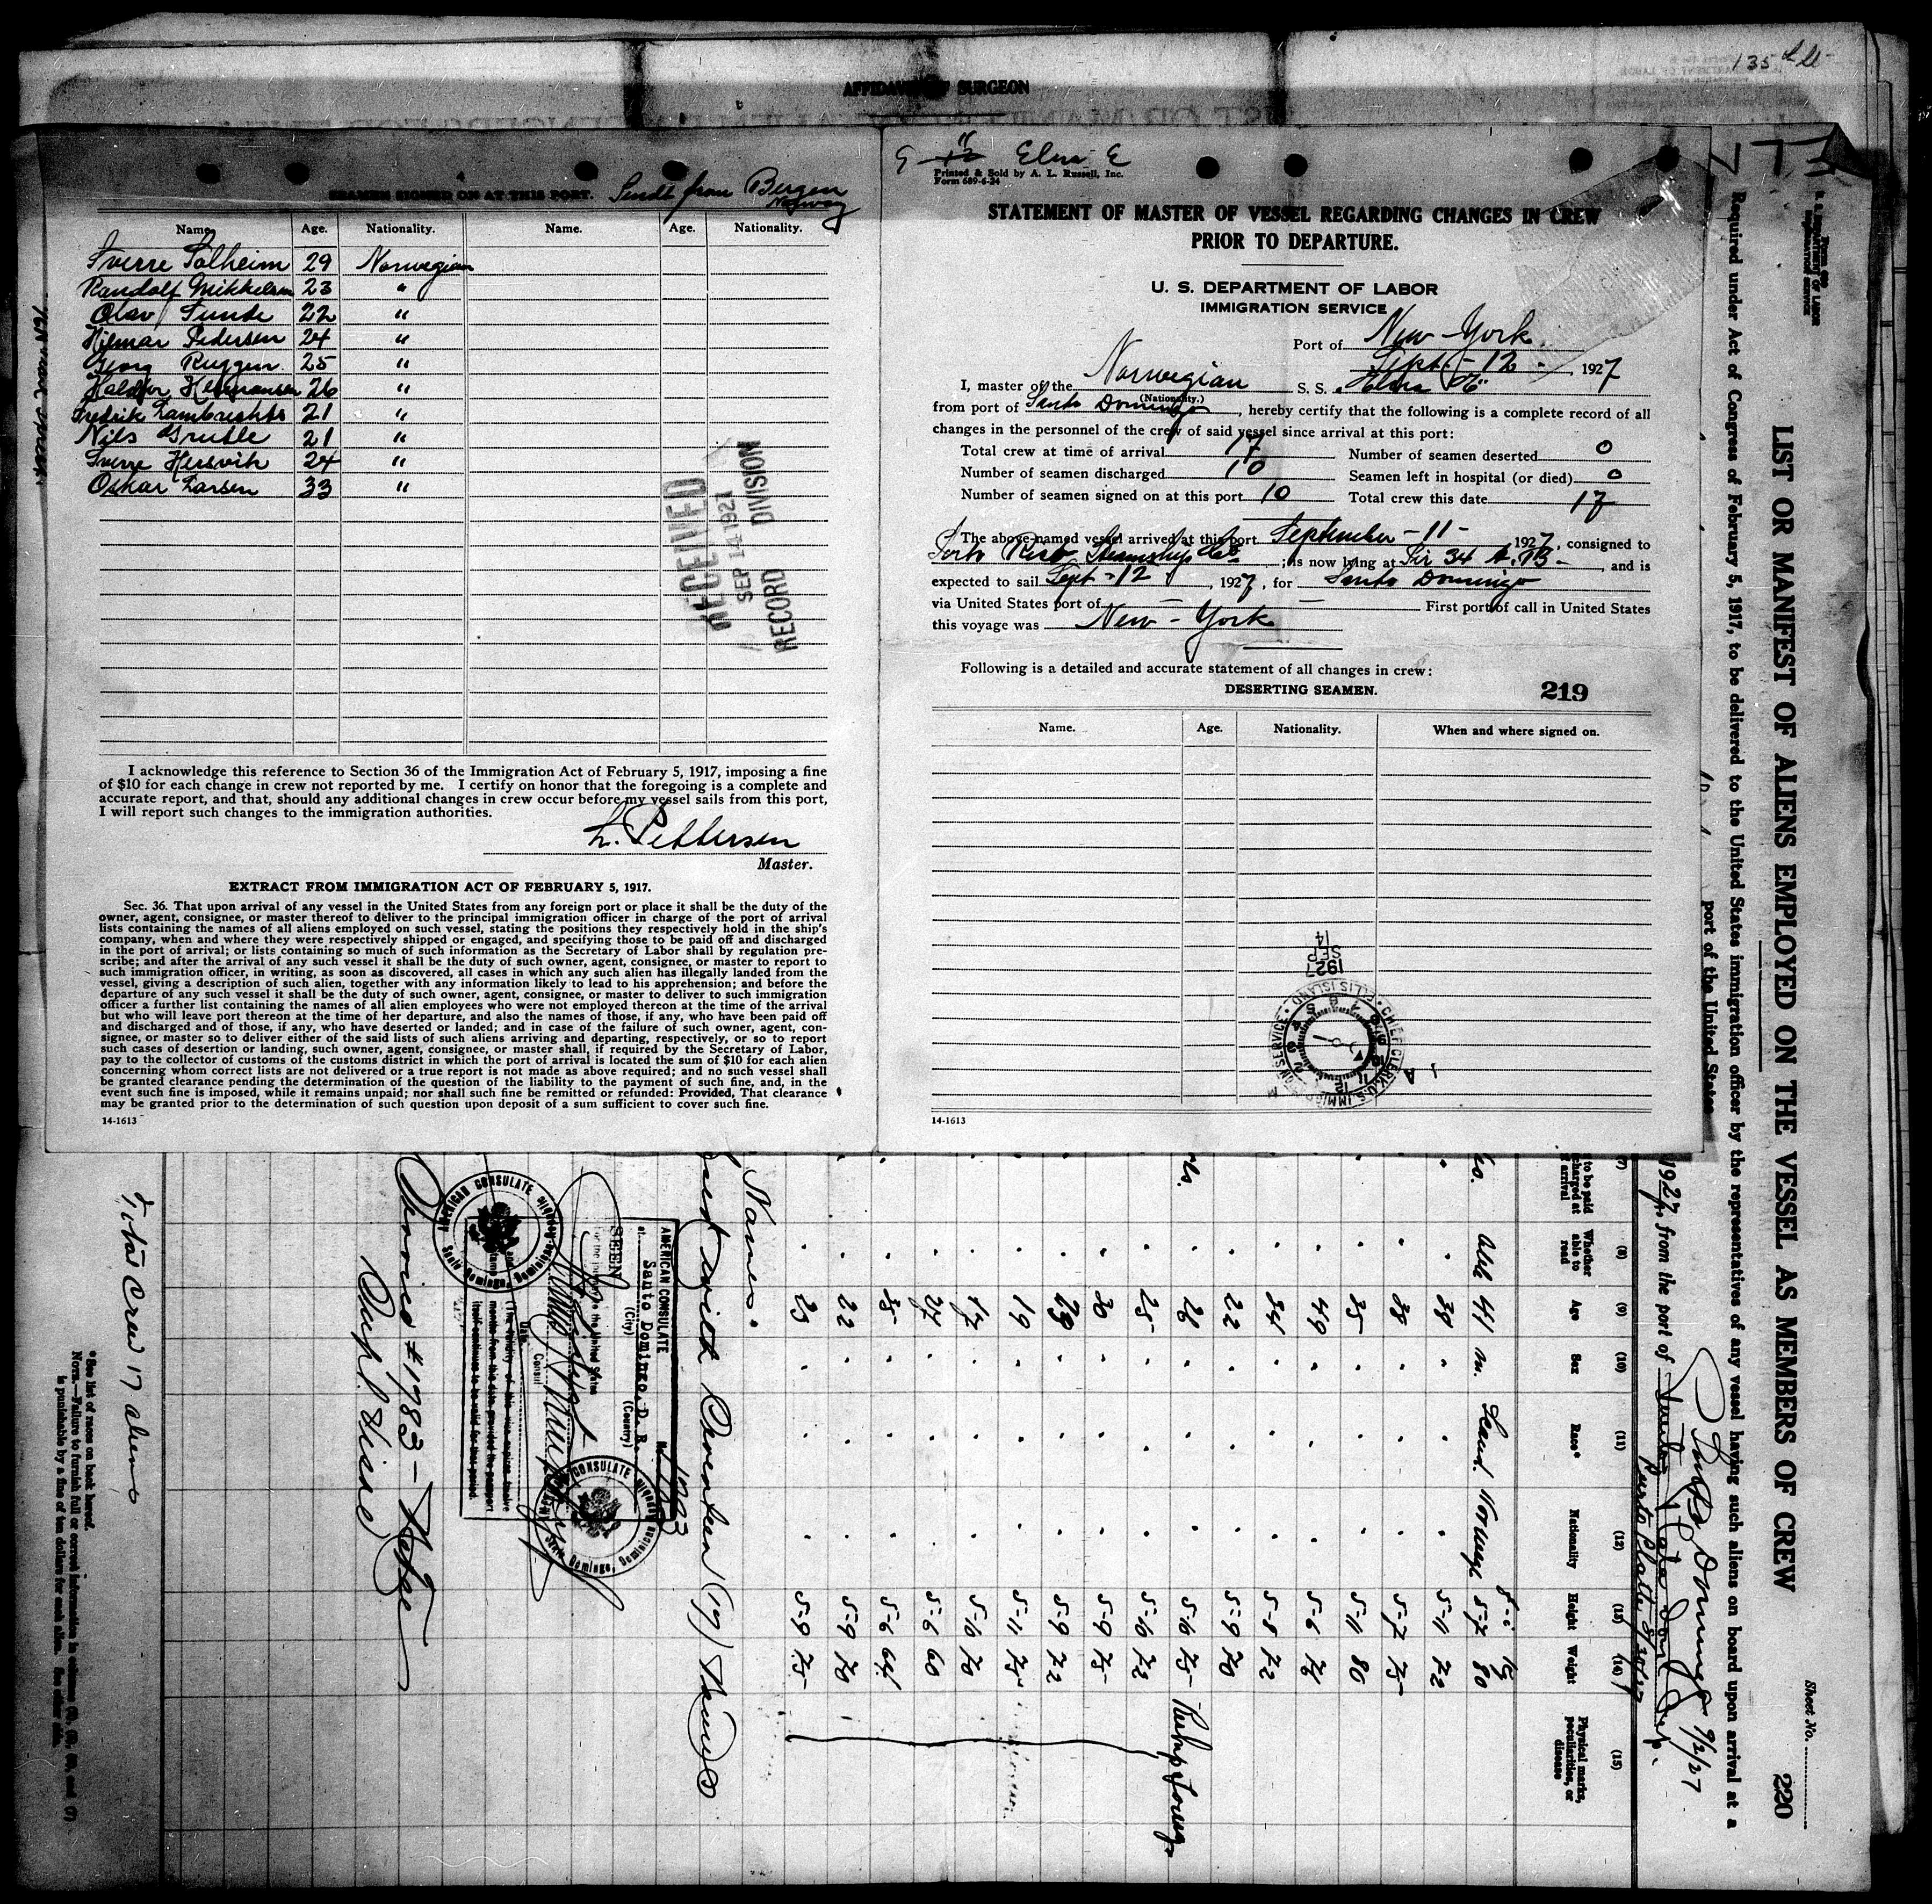 135
AFFIDAVIT OF SURGEON
SEAMEN SIGNED ON AT THIS PORT. Sendt from Bergen
Norway
Name. Age. Nationality. Name. Age. Nationality.
Sverre Solheim 29 Norwegian
Randolf Mikkelsen 23 "
Olav Sunde 22 "
Hilmar Pedersen 24 "
Georg 25 "
26 "
Fredrik Lambrechts 21 "
Nils 21 "
Sverre Hersvik 24 "
Oskar Larsen 33 "
RECEIVED
SEP 14 1927
RECORD DIVISION
I acknowledge this reference to Section 36 of the Immigration Act of February 5, 1917, imposing a fine
of $10 for each change in crew not reported by me. I certify on honor that the foregoing is a complete and
accurate report, and that, should any additional changes in crew occur before my vessel sails from this port,
I will report such changes to the immigration authorities.
L. Pettersen
Master.
EXTRACT FROM IMMIGRATION ACT OF FEBRUARY 5, 1917.
Sec. 36. That upon arrival of any vessel in the United States from any foreign port or place it shall be the duty of the
owner, agent, consignee, or master thereof to deliver to the principal immigration officer in charge of the port of arrival
lists containing the names of all aliens employed on such vessel, stating the positions they respectively hold in the ship's
company, when and where they were respectively shipped or engaged, and specifying those to be paid off and discharged
in the port of arrival; or lists containing so much of such information as the Secretary of Labor shall by regulation pre-
scribe; and after the arrival of any such vessel it shall be the duty of such owner, agent, consignee, or master to report to
such immigration officer, in writing, as soon as discovered, all cases in which any such alien has illegally landed from the
vessel, giving a description of such alien, together with any information likely to lead to his apprehension; and before the
departure of any such vessel it shall be the duty of such owner, agent, consignee, or master to deliver to such immigration
officer a further list containing the names of all alien employees who were not employed thereon at the time of the arrival
but who will leave port thereon at the time of her departure, and also the names of those, if any, who have been paid off
and discharged and of those, if any, who have deserted or landed; and in case of the failure of such owner, agent, con-
signee, or master so to deliver either of the said lists of such aliens arriving and departing, respectively, or so to report
such cases of desertion or landing, such owner, agent, consignee, or master shall, if required by the Secretary of Labor,
pay to the collector of customs of the customs district in which the port of arrival is located the sum of $10 for each alien
concerning whom correct lists are not delivered or a true report is not made as above required; and no such vessel shall
be granted clearance pending the determination of the question of the liability to the payment of such fine, and, in the
event such fine is imposed, while it remains unpaid; nor shall such fine be remitted or refunded: Provided, That clearance
may be granted prior to the determination of such question upon deposit of a sum sufficient to cover such fine.
14-1613
Elna E
Printed & Sold by A. L. Russell, Inc.
Form 689-6-24
STATEMENT OF MASTER OF VESSEL REGARDING CHANGES IN CREW
PRIOR TO DEPARTURE.
U. S. DEPARTMENT OF LABOR
IMMIGRATION SERVICE
Port of New-York
Sept-12-, 1927
I, master of the Norwegian S. S. "Elna E"
(Nationality.)
from port of Santo Domingo, hereby certify that the following is a complete record of all
changes in the personnel of the crew of said vessel since arrival at this port:
Total crew at time of arrival 17 Number of seamen deserted 0
Number of seamen discharged 10 Seamen left in hospital (or died) 0
Number of seamen signed on at this port 10 Total crew this date 17
The above-named vessel arrived at this port September-11-, 1927, consigned to
Porto Rico Steamship Co; is now lying at Pir 34, and is
expected to sail Sept-12, 1927, for Santo Domingo
via United States port of — — First port of call in United States
this voyage was New-York
Following is a detailed and accurate statement of all changes in crew:
DESERTING SEAMEN. 219
Name. Age. Nationality. When and where signed on.
1927
SEP
14
CHIEF CLERK U.S. IMMIGRATION SERVICE
ELLIS ISLAND
14-1613
U. S. DEPARTMENT OF LABOR
IMMIGRATION SERVICE
LIST OR MANIFEST OF ALIENS EMPLOYED ON THE VESSEL AS MEMBERS OF CREW
Sheet No.
220
Required under Act of Congress of February 5, 1917, to be delivered to the United States immigration officer by the representatives of any vessel having such aliens on board upon arrival at a
port of the United States
Santo Domingo 9/2/27
1927, from the port of
(7) (8) (9) (10) (11) (12) (13) (14) (15)
to be paid
Whether able to read Age Sex Race* Nationality Height Weight Physical marks, peculiarities, or disease
No. Able 41 m. Scand. Norweg 5-7 80
38 5-11 72
38 5-7 75
35 5-11 80
49 5-6 74
34 5-8 72
22 5-9 70
26 5-10 75
25 5-10 72
30 5-9 75
23 5-9 72
19 5-11 75
17 5-10 70
24 5-6 60
35 5-6 64
22 5-9 70
23 5-9 75
Names.
with Seventeen (17) Names
AMERICAN CONSULATE
Santo Domingo, D. R.
(City) (Country)
SEEN
Consul
Date
AMERICAN CONSULATE
Santo Domingo, Dominican
Service #1983-
Total Crew 17 aliens
*See list of races on back hereof.
NOTE.—Failure to furnish full or correct information in columns (3), (5), (6), and (7)
is punishable by a fine of ten dollars for each alien. See other side.